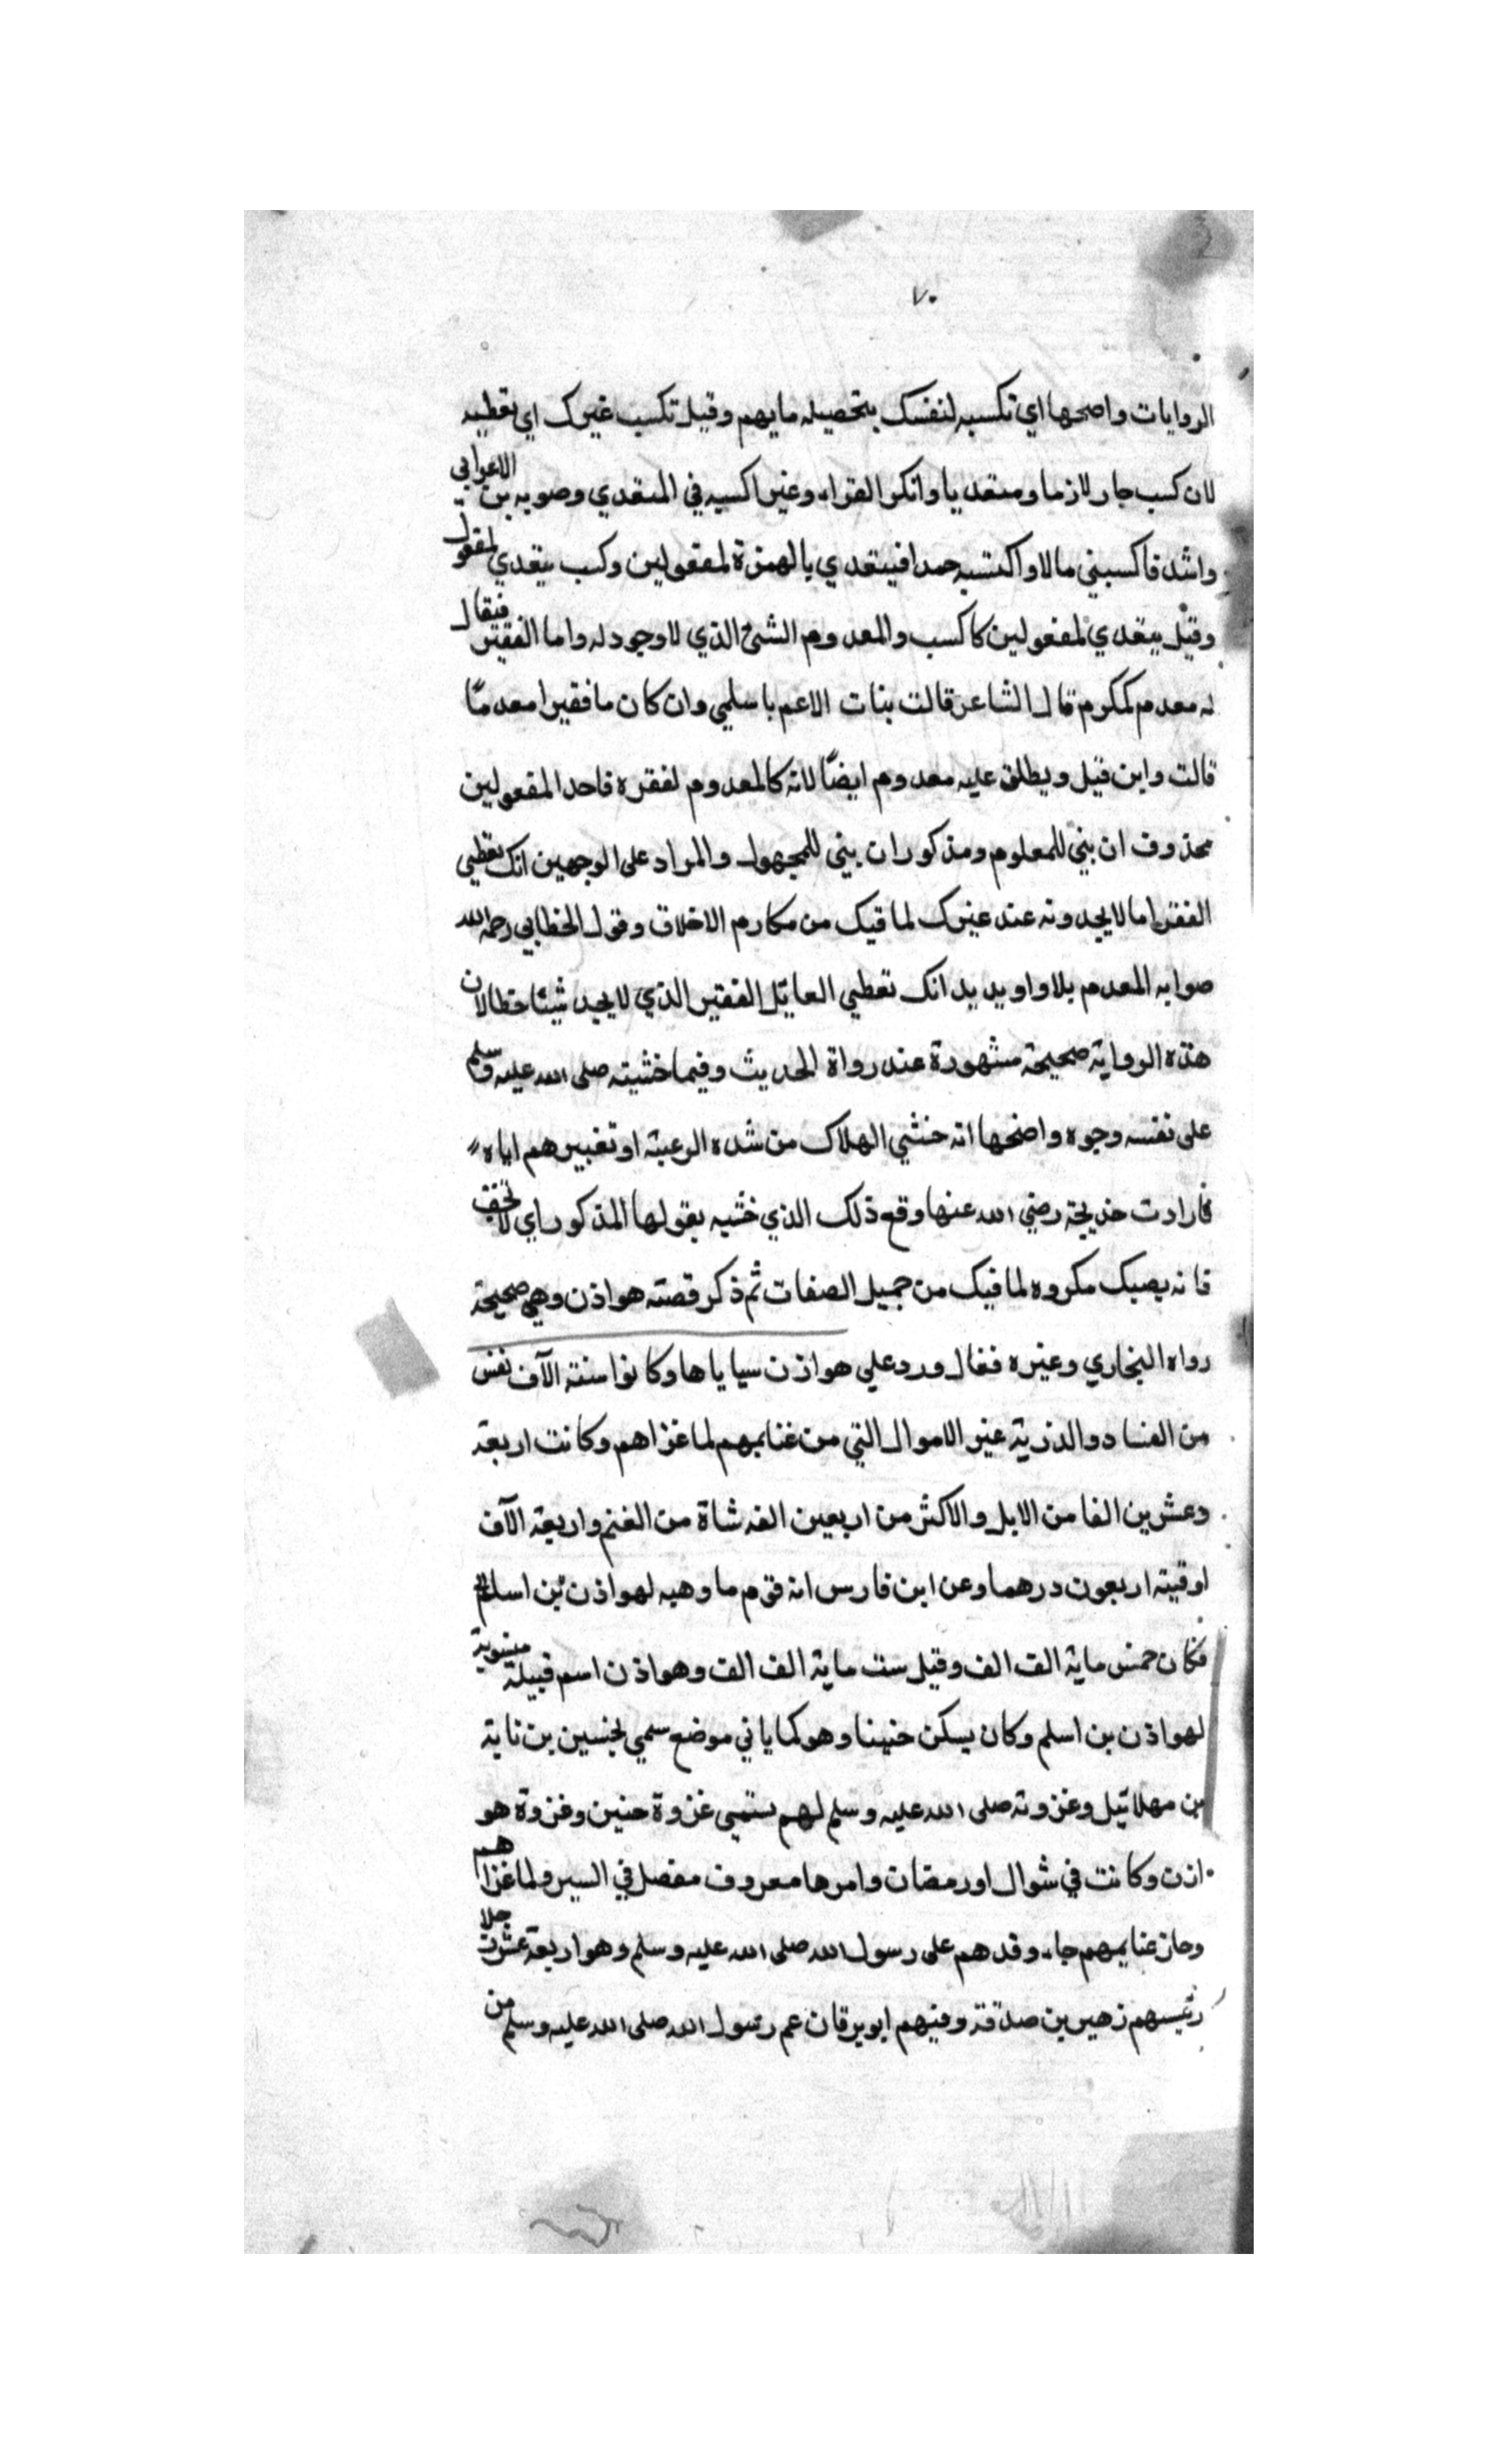 ٧٠
الروايات واصحها اي تكسبه لنفسك بتحصيله مايهم وقيل تكسب غيرك اي تعطيه
لان كسب جار لازما ومتعديا وانكر الفراء وغير اكسبه في المتعدي وصوبه بن الاعرابي
وانشد فاكسبني مالا واكتسبه حمدا فيتعدي بالهمزة لمفعولين وكسب يتعدي لمفعول
وقيل يتعدي لمفعولين كاكسب والمعدوم الشئ الذي لاوجود له واما الفقير فيقال
له معدم كمكرم قال الشاعر قالت بنات الاعم ياسلمي وان كان مافقيرا معدمًا
قالت وابن قيل ويطلق عليه معدوم ايضًا لانه كالمعدوم لفقره فاحد المفعولين
محذوف ان بني للمعلوم ومذكور ان بني للمجهول والمراد على الوجهين انك تعطي
الفقرا مالايجدونه عند غيرك لما فيك من مكارم الاخلاق وقول الخطابي رحمه الله
صوابه المعدم بلا واو يريد انك تعطي العايل الفقير الذي لايجد شيئا خطا لان
هذه الرواية صحيحة مشهورة عند رواة الحديث وفيما خشيته صلى الله عليه وسلم
على نفسه وجوه واضحها انه خشي الهلاك من شده الرعبة او تغييرهم اياه
فارادت خديجة رضي الله عنها وقع ذلك الذي خشيه بقولها المذكور اي لا تخف
فانه يصبك مكروه لما فيك من جميل الصفات ثم ذكر قصته هوازن وهي صحيحة
رواه البخاري وغيره فقال ورد علي هوازن سباياها وكانوا ستة الآف نفس
من النساء والذرية غير الاموال التي من غنايمهم لما غزاهم وكانت اربعة
وعشرين الفا من الابل والاكثر من اربعين الفه شاة من الغنم واربعة الآف
اوقيته اربعون درهما وعن ابن فارس انه قوم ما وهبه لهوازن بن اسلم
فكان خمس ماية الف الف وقيل ست ماية الف الف وهوازن اسم قبيلة منسوبة
لهوازن بن اسلم وكان يسكن حنينا وهو كما ياتي موضع سمي بحنين بن ناية
بن مهلائيل وغزوته صلى الله عليه وسلم لهم تسمي غزوة حنين وغزوة هو
ازن وكانت في شوال او رمضان وامرها معروف مفصل في السير ولما غزاهم
وحاز غنايمهم جاء وفدهم على رسول الله صلى الله عليه وسلم وهو اربعة عشر رجلا
رئيسهم زهير بن صدقة وفيهم ابو برقان عم رسول الله صلى الله عليه وسلم من